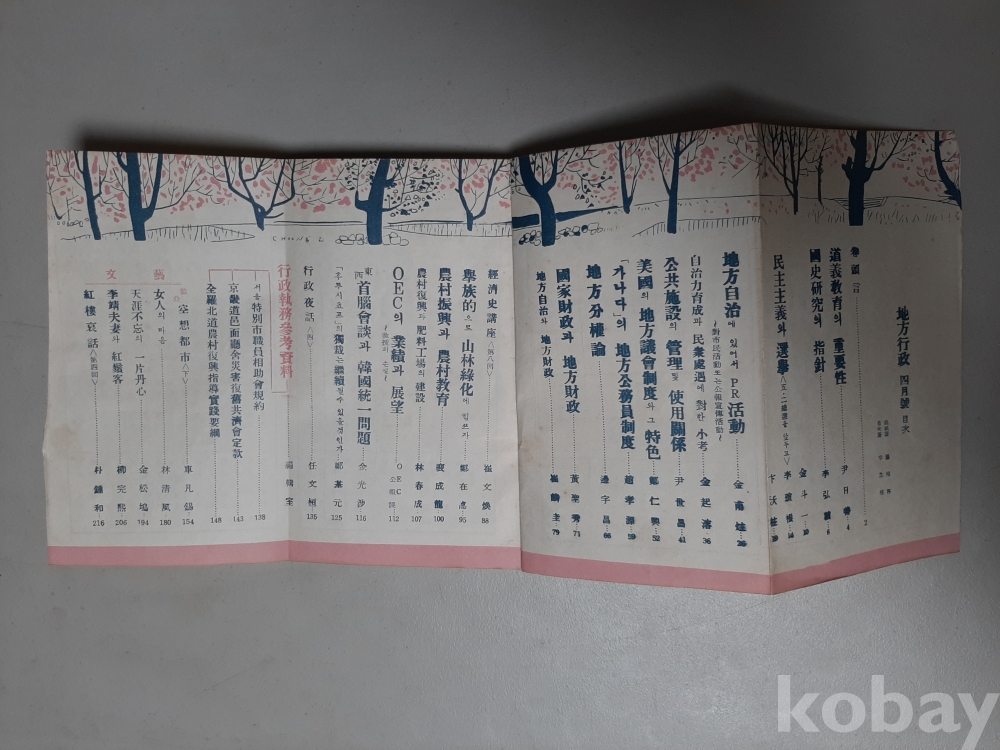 地方行政 四月號 目次
卷頭言 2
道義敎育의 重要性 尹日善 4
國史硏究의 指針 李弘稙 6
金斗一
民主主義와 選擧
地方自治에 있어서 PR活動
～對市民活動 또는 公報宣傳活動～
自治力育成과 民衆處遇에 對한 小考 金起 36
公共施設의 管理 및 使用關係 尹世昌 41
美國의 地方議會制度와 그 特色 鄭仁興 52
「가나다」의 地方公務員制度 趙孝源 59
地方分權論 邊宇昌 66
國家財政과 地方財政 黃聖秀 71
地方自治와 地方財政 79
經濟史講座〈第八回〉 崔文煥 88
擧族的으로 山林綠化에 힘쓰자 鄭在 95
農村振興과 農村敎育 裵成龍 100
農村復興과 肥料工場의 建設 林春成 107
OEC의 業績과 展望 OEC 公報課 112
東西 首腦會談과 韓國統一問題 金光涉 116
「후루시초프」의 獨裁는 繼續될 수 있을 것인가 鄭 元 125
行政夜話〈四〉 任文桓 135
行政執務參考資料 編輯室
서울特別市職員相助會規約 138
京畿道邑面廳舍災害復舊共濟會定款 143
全羅北道農村復興指導實踐要綱 148
文藝
空想都市〈下〉 車凡錫 154
女人의 마음 林淸風 180
天涯不忘의 一片丹心 金松 194
李靖夫妻와 紅鬚客 柳完熙 206
紅樓哀話〈第四回〉 朴鍾和 216
CHONG L
kobay